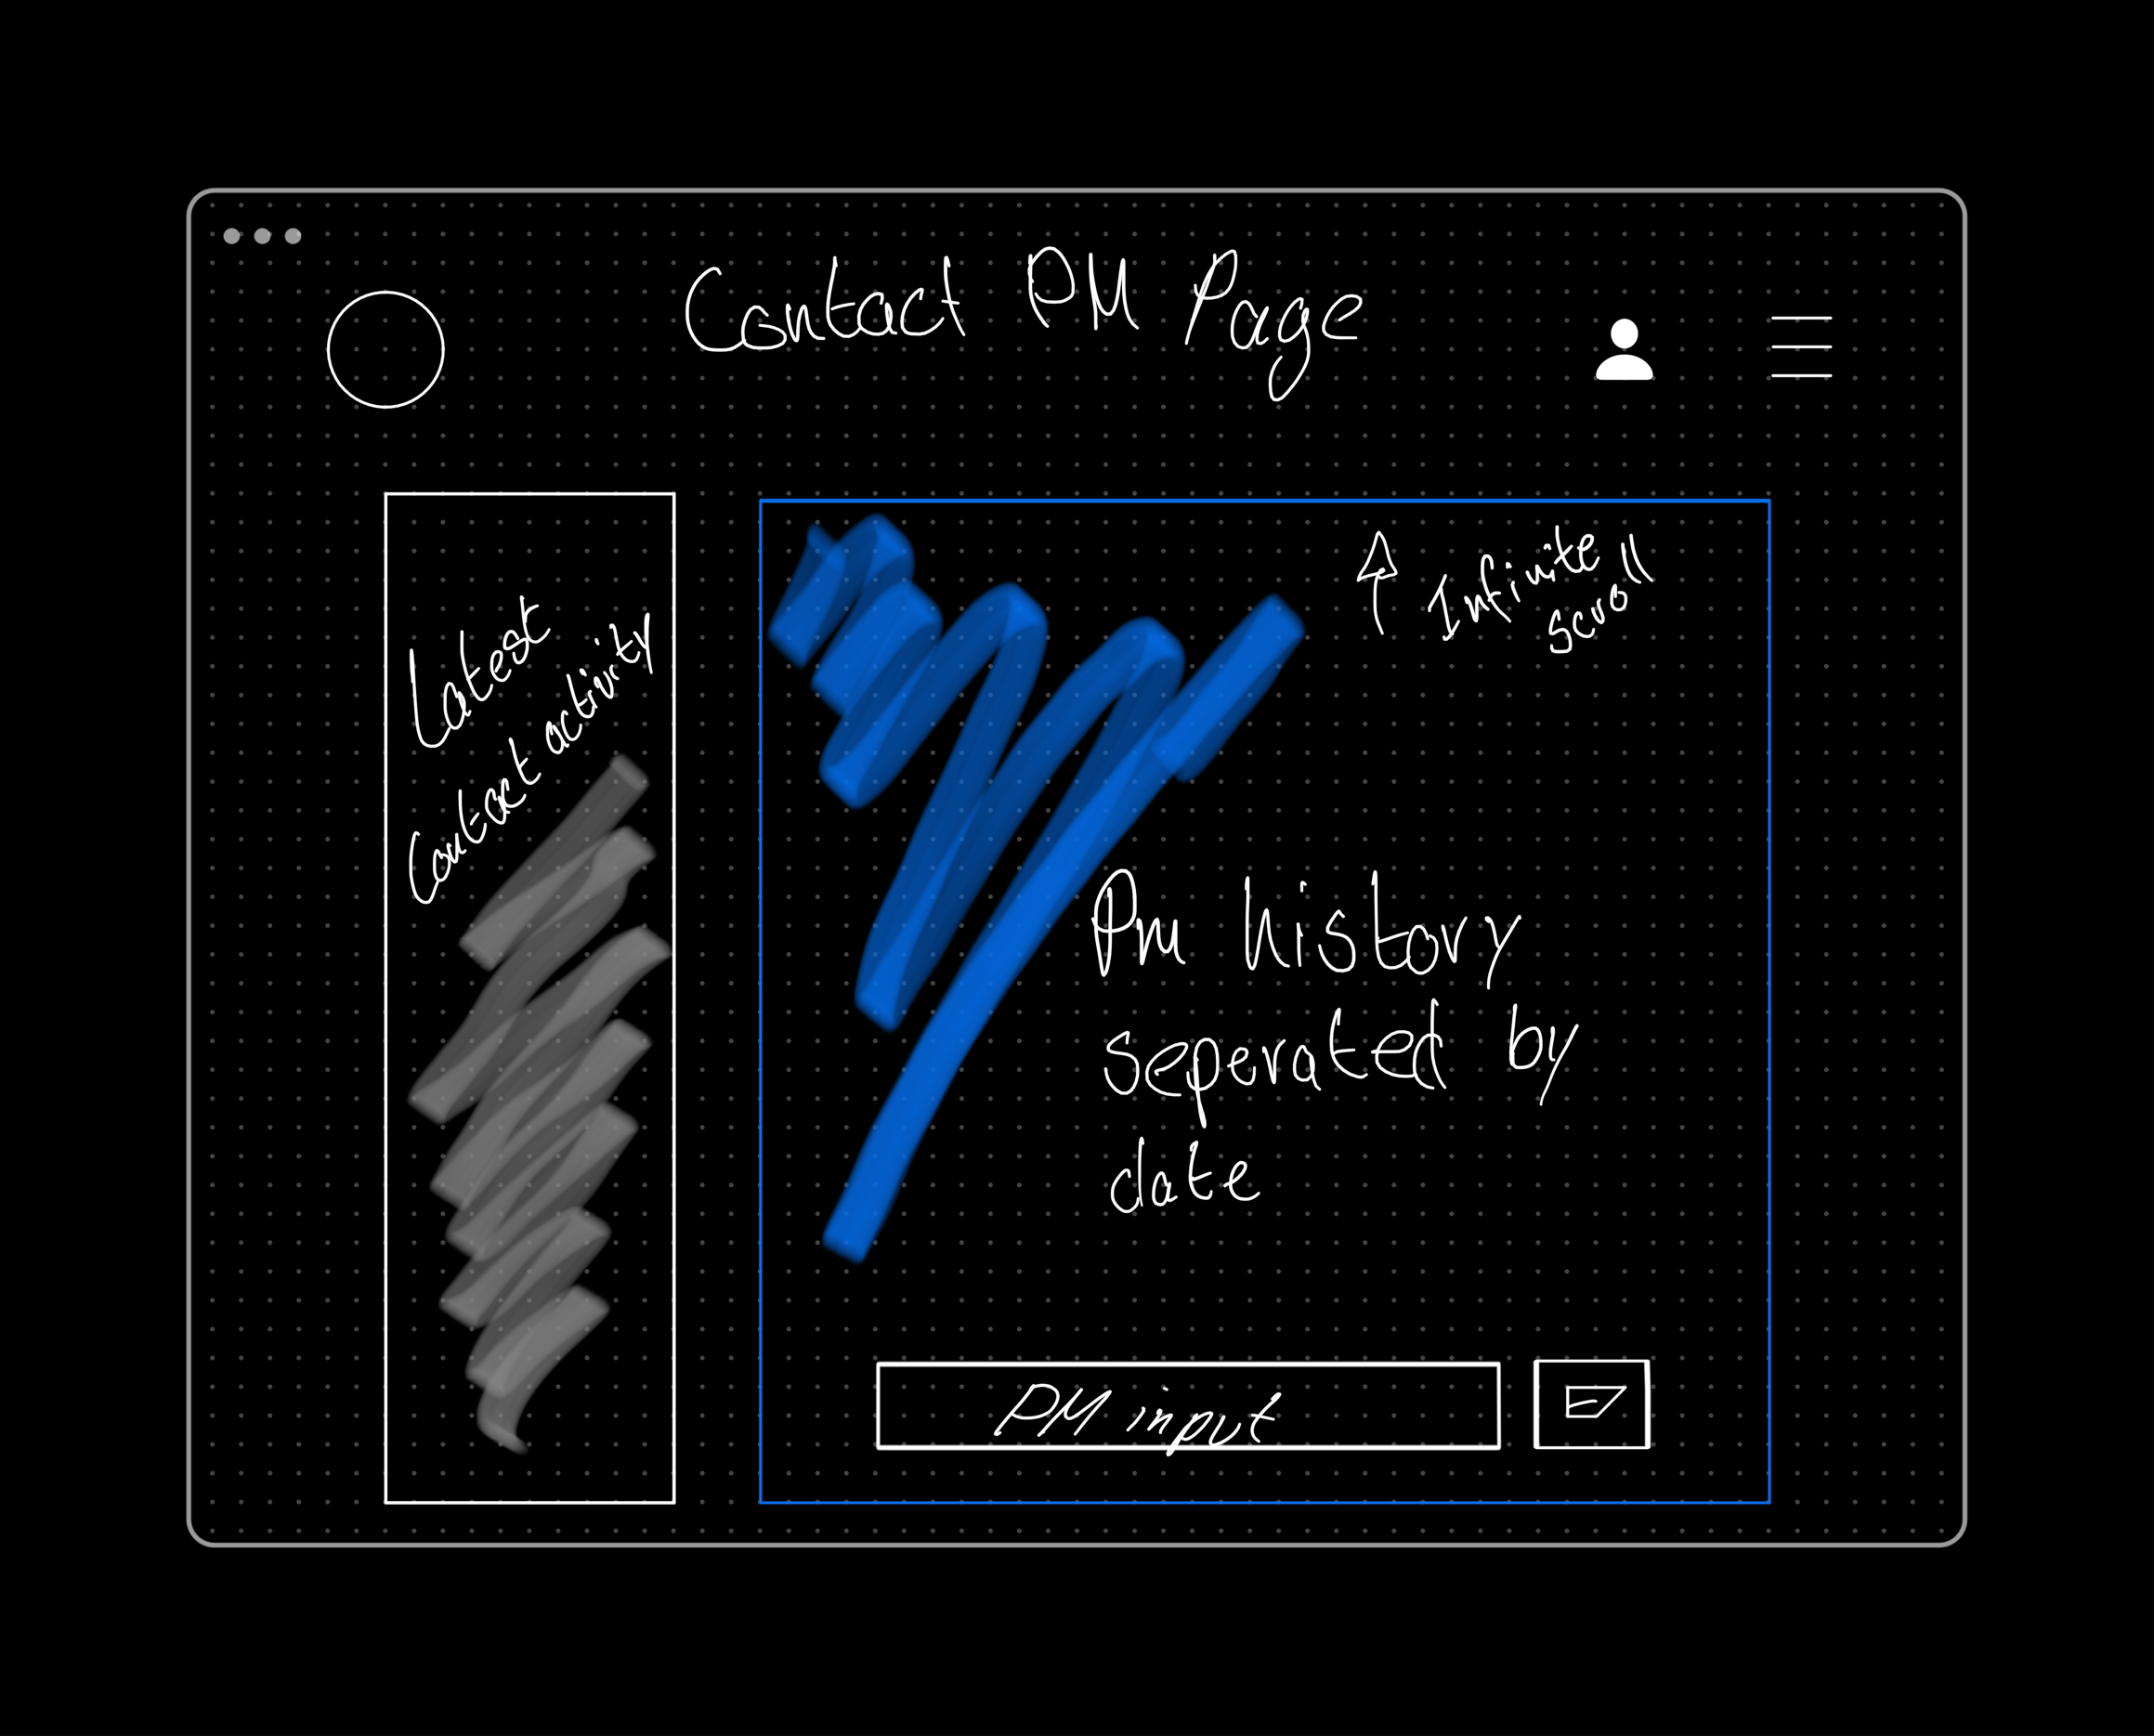 Contact PM Page
Latest
Contact activity
Infinite
scroll
Pm history
seperated by
date
PM input